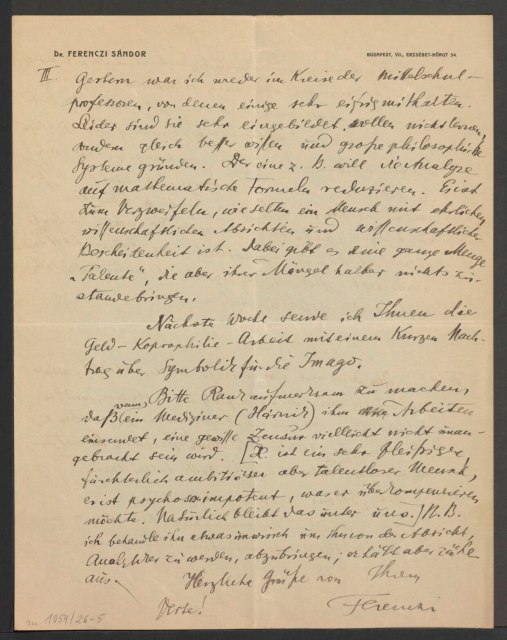 Dr. FERENCZI SÁNDOR
BUDAPEST, VII., ERZSÉBET-KÖRUT 54.
III. Gestern war ich wieder im Kreise der Mittelschul-
professoren, von denen einige sehr eifrig mithalten.
Leider sind sie sehr eingebildet, wollen nicht lernen,
sondern gleich besser wissen und große philosophische
Systeme gründen. Der eine z. B. will die Analyse
auf mathematische Formeln reduzieren. Es ist
zum Verzweifeln, wie selten ein Mensch mit ehrlichen
wissenschaftlichen Absichten und wissenschaftlicher
Bescheidenheit ist. Dabei gibt es eine ganze Menge
„Talente“, die aber ihrer Mängel halber nichts zu-
standebringen.
Nächste Woche sende ich Ihnen die
Geld-Koprophilie-Arbeit mit einem kurzen Nach-
trag über Symbolik für die Imago.
Bitte Rank aufmerksam zu machen,
daß, wenn ein Mediziner (Hárnik) ihm Arbeiten
einsendet, eine gewisse Zensur vielleicht nicht unan-
gebracht sein wird. [H. ist ein sehr fleißiger,
fürchterlich ambitiöser aber talentloser Mensch,
er ist psychosoimpotent, was er überkompensieren
möchte. Natürlich bleibt das unter uns.] N.B.
ich behandle ihn etwas um ihn von der Absicht,
Analytiker zu werden, abzubringen; er hält aber zähe
aus.
Herzliche Grüße von Ihrem
Verte!
Ferenczi
1054/26-5